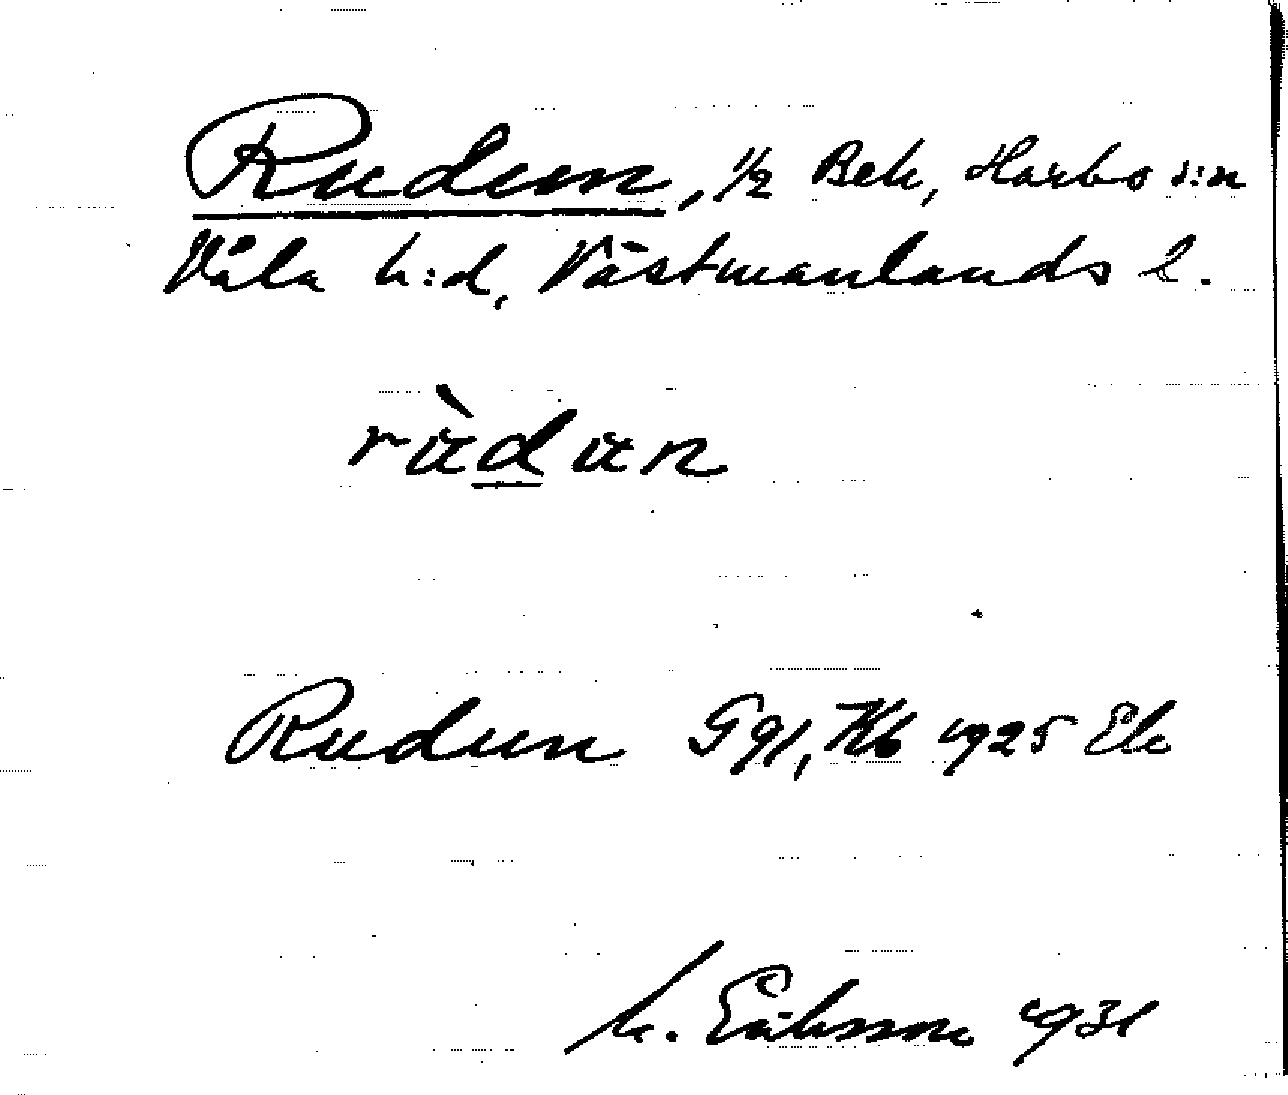 Rudun, 1/2 Beb, Harbo s:n
Våla h:d, Västmanlands l.
rùdun
Rudun G 91, Kb 1925 Eb
M. Eriksson 1931